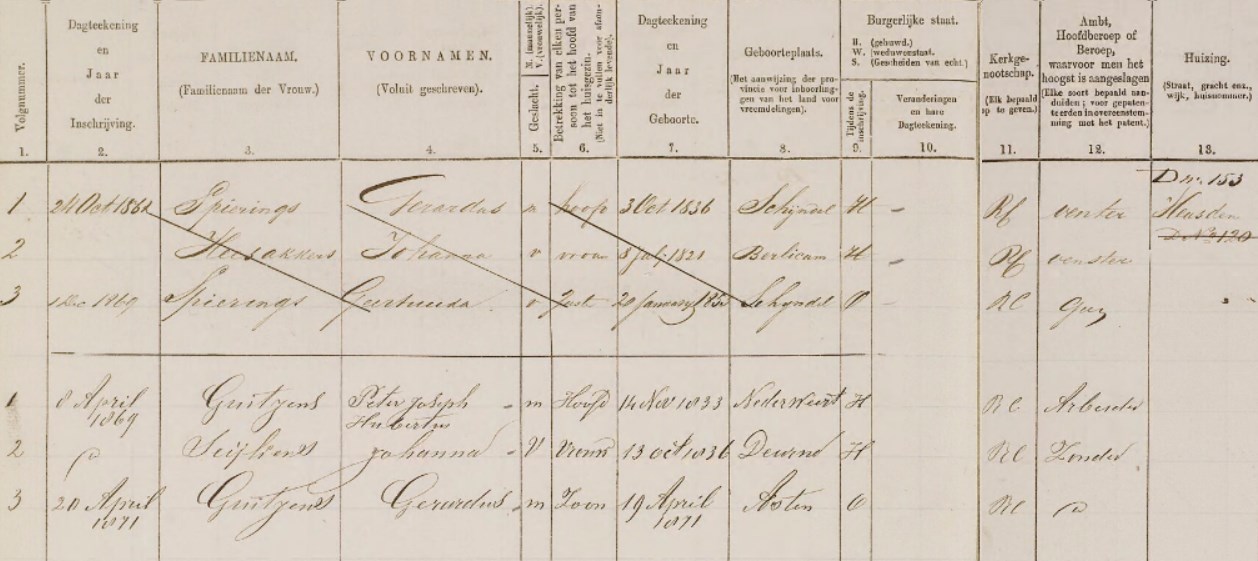 Volgnummer.
1.
Dagteekening
en
Jaar
der
Inschrijving.
2.
FAMILIENAAM.
(Familienaam der Vrouw.)
3.
VOORNAMEN.
(Voluit geschreven).
4.
Geslacht. M. (mannelijk). V. (vrouwelijk).
5.
Betrekking van elken per-
soon tot het hoofd van
het huisgezin.
(Niet in te vullen voor afzon-
derlijk levende).
6.
Dagteekening
en
Jaar
der
Geboorte.
7.
Geboorteplaats.
(Met aanwijzing der pro-
vincie voor inboorlin-
gen van het land voor
vreemdelingen).
8.
Burgerlijke staat.
H. (gehuwd.)
W. (weduwestaat.
S. (Gescheiden van echt.)
Tijdens de
inschrijving.
9.
Veranderingen
en hare
Dagteekening.
10.
Kerkge-
nootschap.
(Elk bepaald
op te geven.)
11.
Ambt,
Hoofdberoep of
Beroep,
waarvoor men het
hoogst is aangeslagen
(Elke soort bepaald aan-
duiden; voor gepaten-
teerden in overeenstem-
ming met het patent.)
12.
Huizing.
(Straat, gracht enz.,
wijk, huisnummer.)
13.
153
1 24 Oct Spierings Gerardus m hoofd 3 Oct 1836 Schijndel H - RC venter Heusden
120
2 Heesakkers Johanna v vrouw 1821 Berlicum H - RC venster
3 1869 Spierings Geertruida v Schyndel O RC
1 8 April 1869 Peter Joseph Hubertus m Hoofd 14 Nov 1833 Nederweert H RC Arbeider
2 Johanna V Vrouw 13 oct 1836 Deurne H RC Zonder
3 20 April 1871 Gerardus m Zoon 19 April 1871 Asten O RC